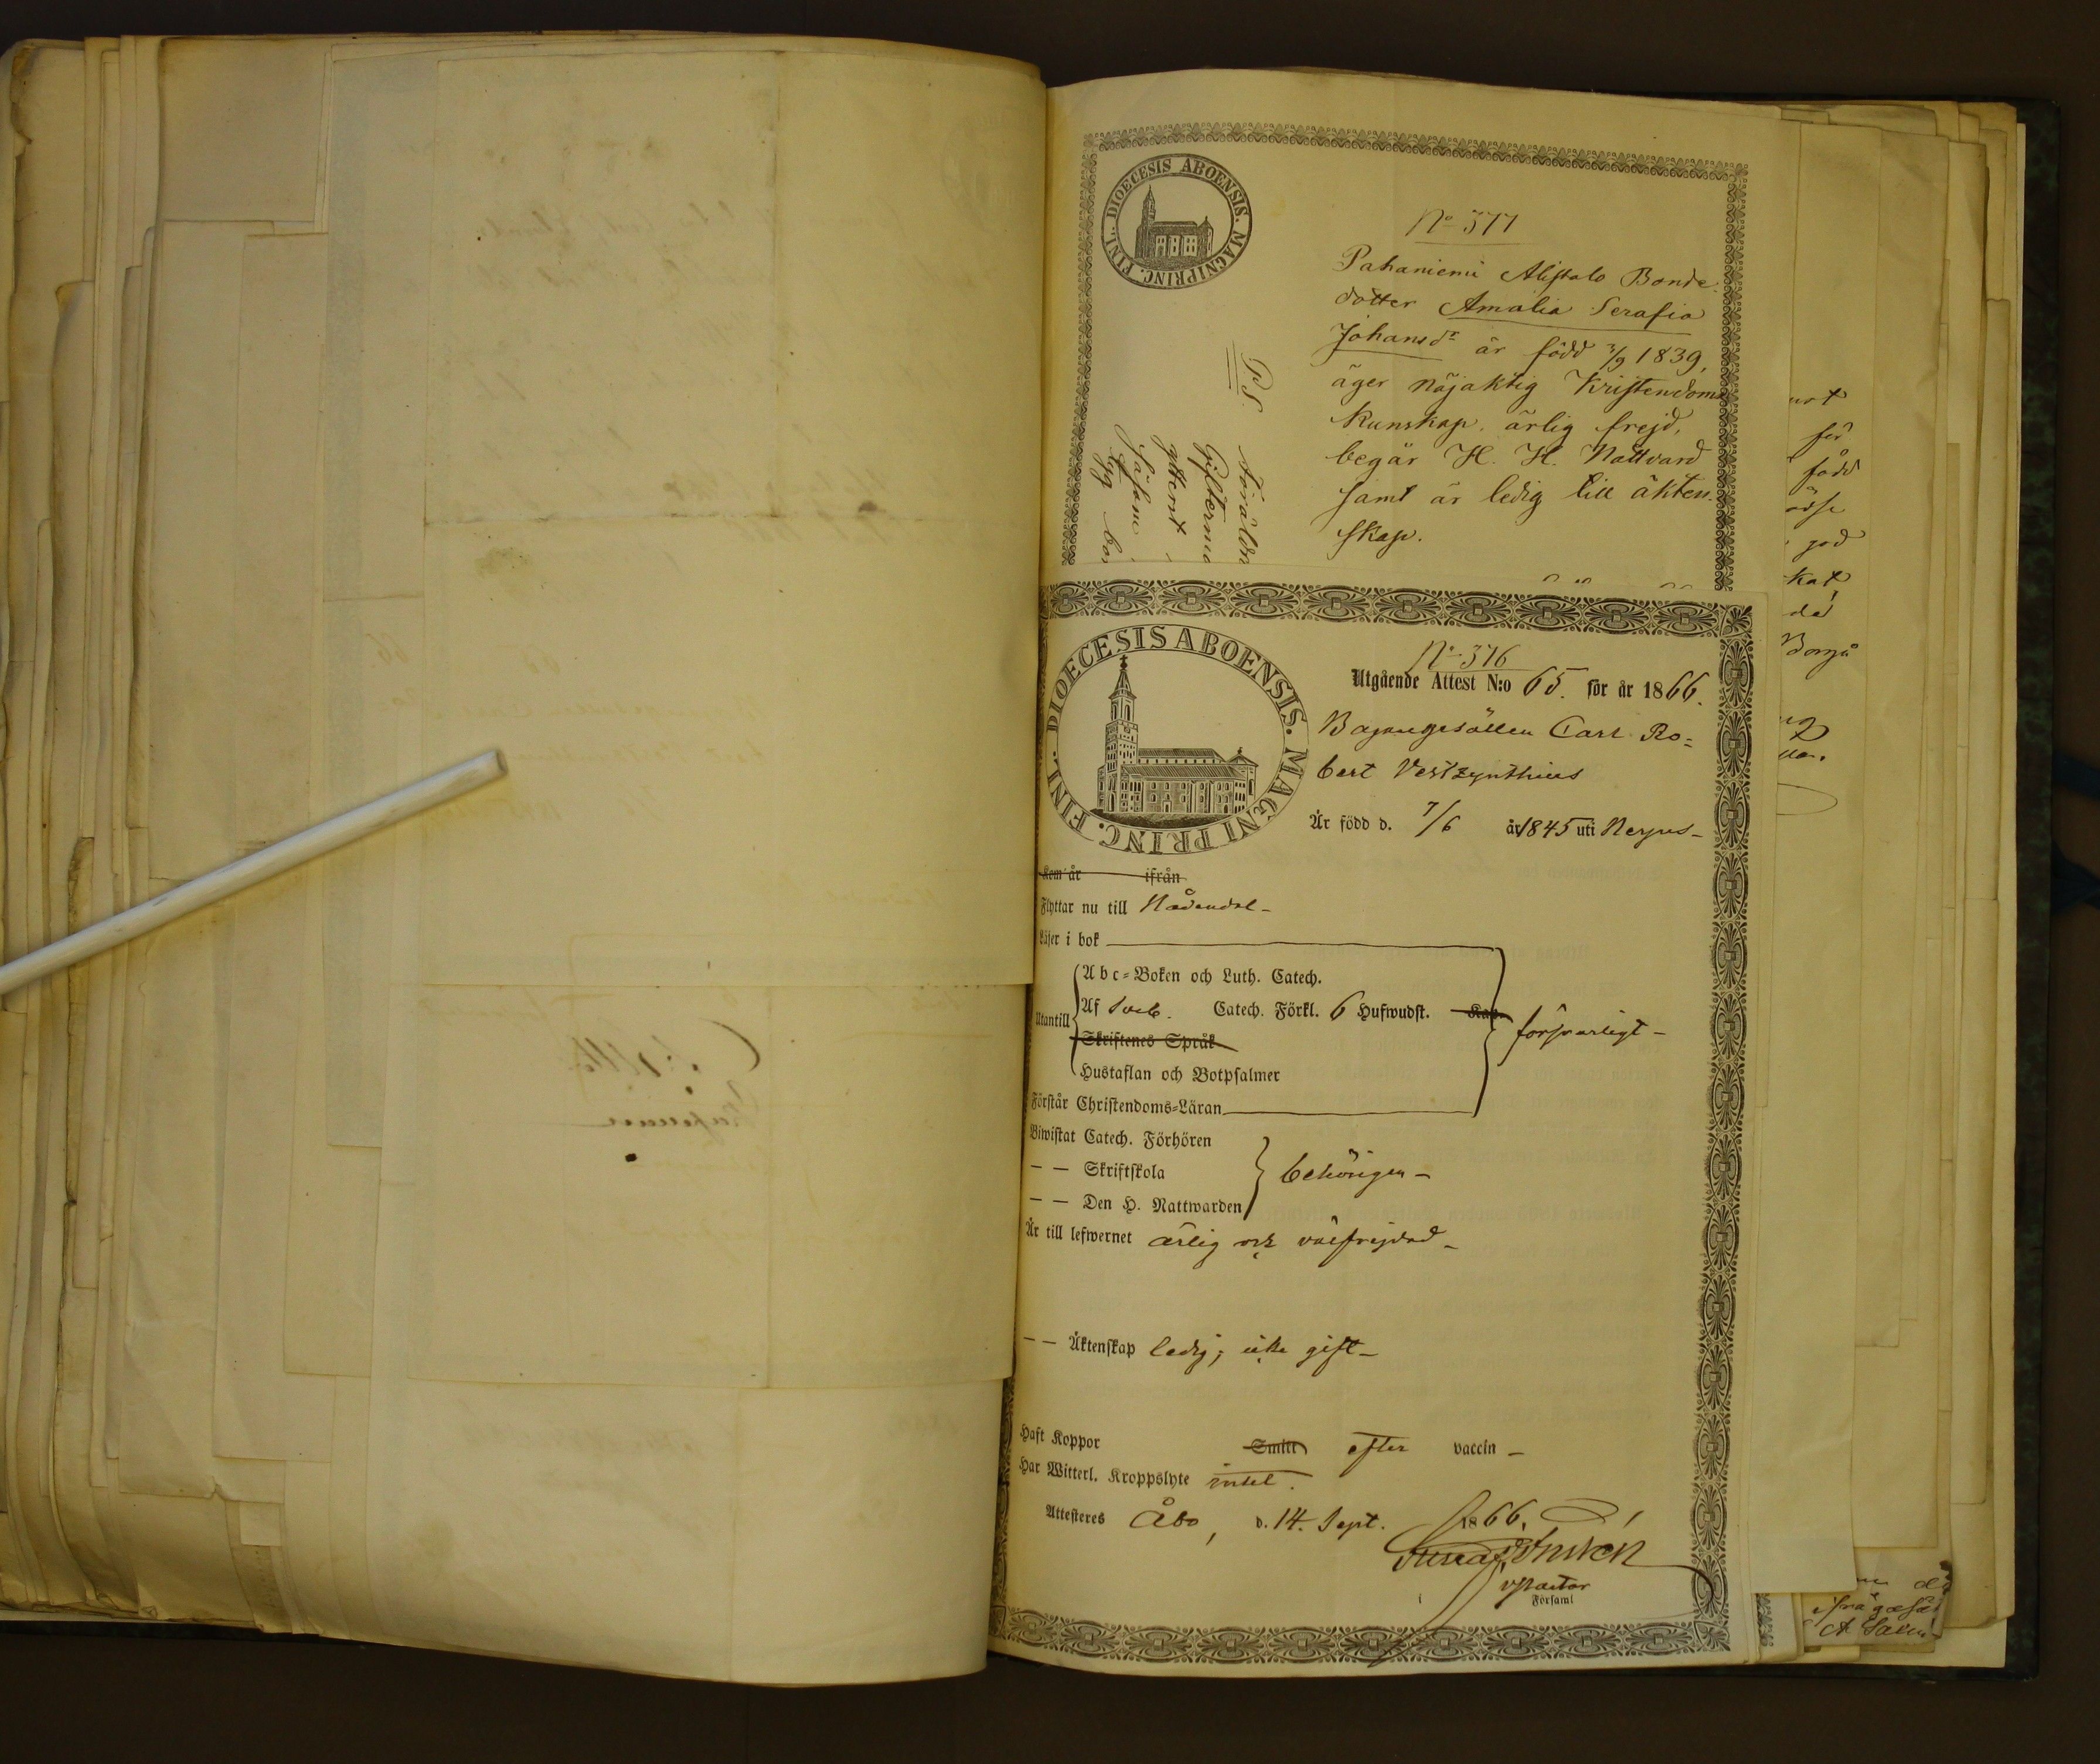 DIOECESIS ABOENSIS. MAGNI PRINC. FINL.
No 377
Pahaniemi Alistalo Bonde
dotter Amalia Serafia
Johansdr är född 3/9 1839,
äger nöjaktig Kristendoms
kunskap, ärlig frejd,
begår H. H. Nattvard
samt är ledig till äkten-
skap.
PS.
DIOECESIS ABOENSIS. MAGNI PRINC. FINL.
No 376
Utgående Attest N:o 65. för år 1866.
Bagaregesällen Carl Ro=
bert Vestzynthius
Är född d. 7/6 år 1845 uti Nerpes-
Kom år ifrån
Flyttar nu till Nådendal-
Läser i bok
Utantill
Abc=Boken och Luth. Catech.
Af Sveb. Catech. Förkl. 6 Hufwudst. Kap.
Skriftenes Språk
Hustaflan och Botpsalmer
försvarligt-
Förstår Christendoms=Läran
Biwistat Catech. Förhören
— — Skriftskola
— — Den H. Nattwarden
behörigen-
Är till lefwernet ärlig och välfrejdad-
— — Äktenskap ledig; icke gift-
Haft Koppor Smitt efter vaccin-
Har Witterl. Kroppslyte intet.
Attesteres Åbo, d. 14. Sept. 1866.
Församl